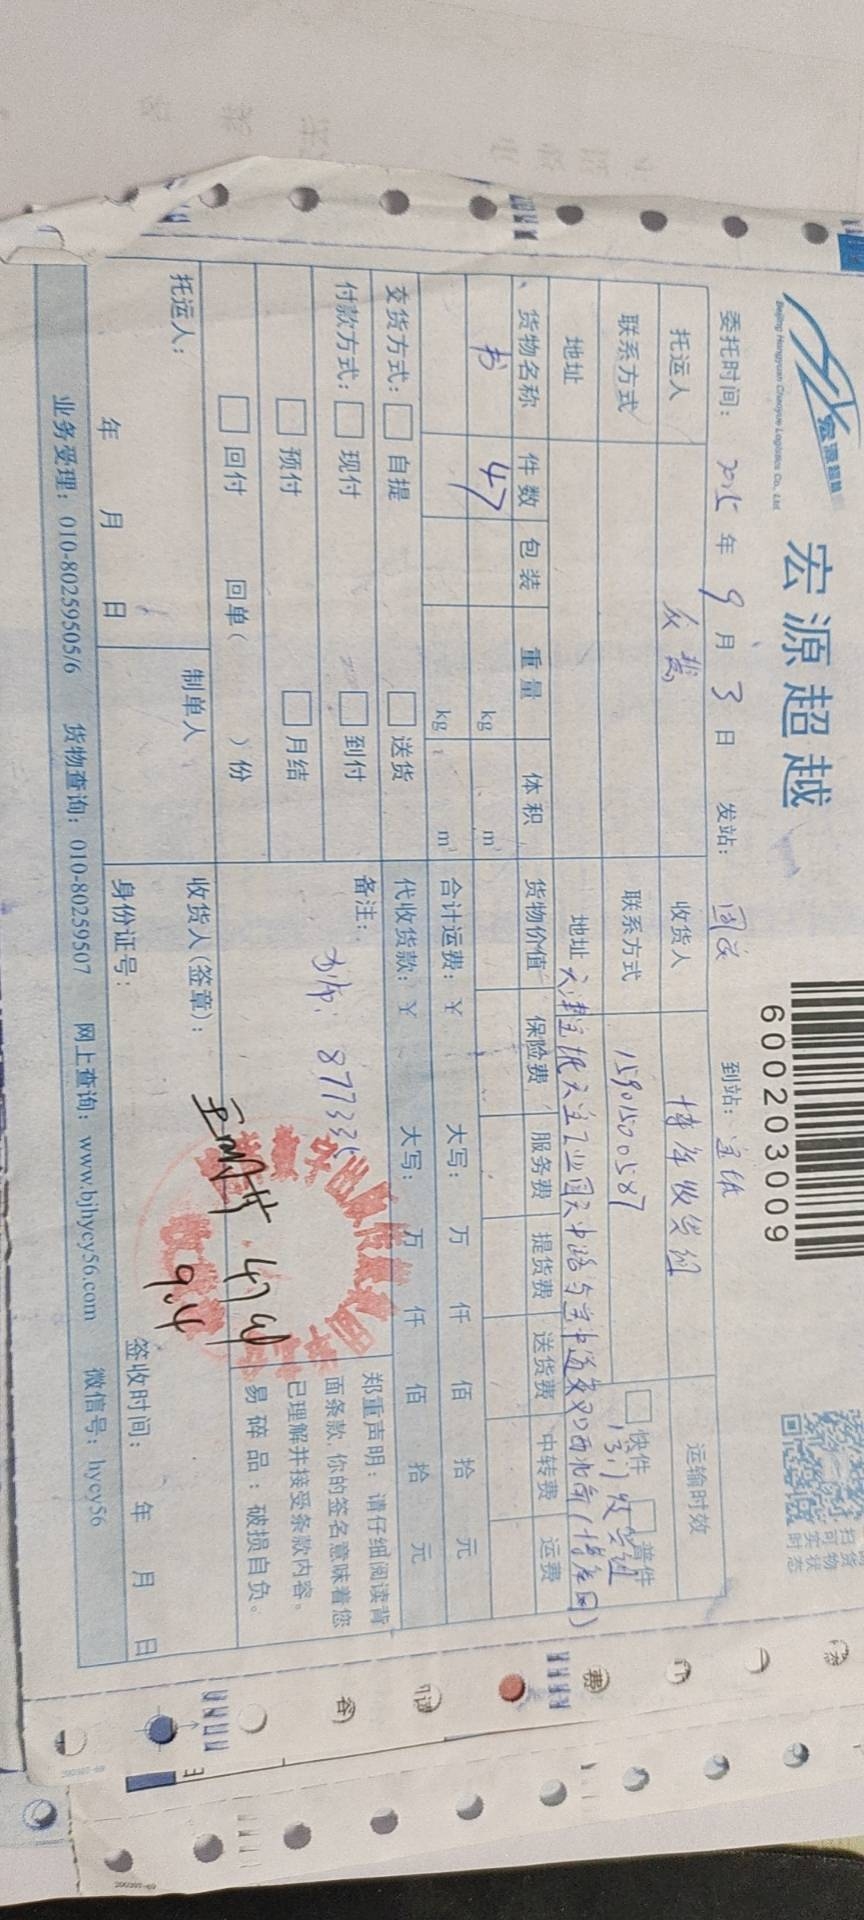 宏源超越
Beijing Hongyuan Chaoyue Logistics Co., Ltd.
宏源超越
600203009
委托时间: 2025年 9月 3日 发站: 到站: 宝坻
托运人 收货人 博库收货组 运输时效
联系方式 联系方式 15901500587 快件 普件
地址 地址 天津宝坻天宝工业园天中路与宝中道交叉口西北角(博库网)
13门收货组
货物名称 件数 包装 重量 体积 货物价值 保险费 服务费 提货费 送货费 中转费 运费
书 47 kg m³
kg m³ 合计运费: ¥ 大写: 万 仟 佰 拾 元
交货方式: 自提 送货 代收货款: ¥ 大写: 万 仟 佰 拾 元
付款方式: 现付 到付 备注:
预付 月结
回付 回单( )份
郑重声明: 请仔细阅读背
面条款,你的签名意味着您
已理解并接受条款内容。
易碎品: 破损自负。
47包
9.4
托运人: 制单人 收货人(签章):
年 月 日 身份证号: 签收时间: 年 月 日
业务受理: 010-80259505/6 货物查询: 010-80259507 网上查询: www.bjhycy56.com 微信号: hycy56